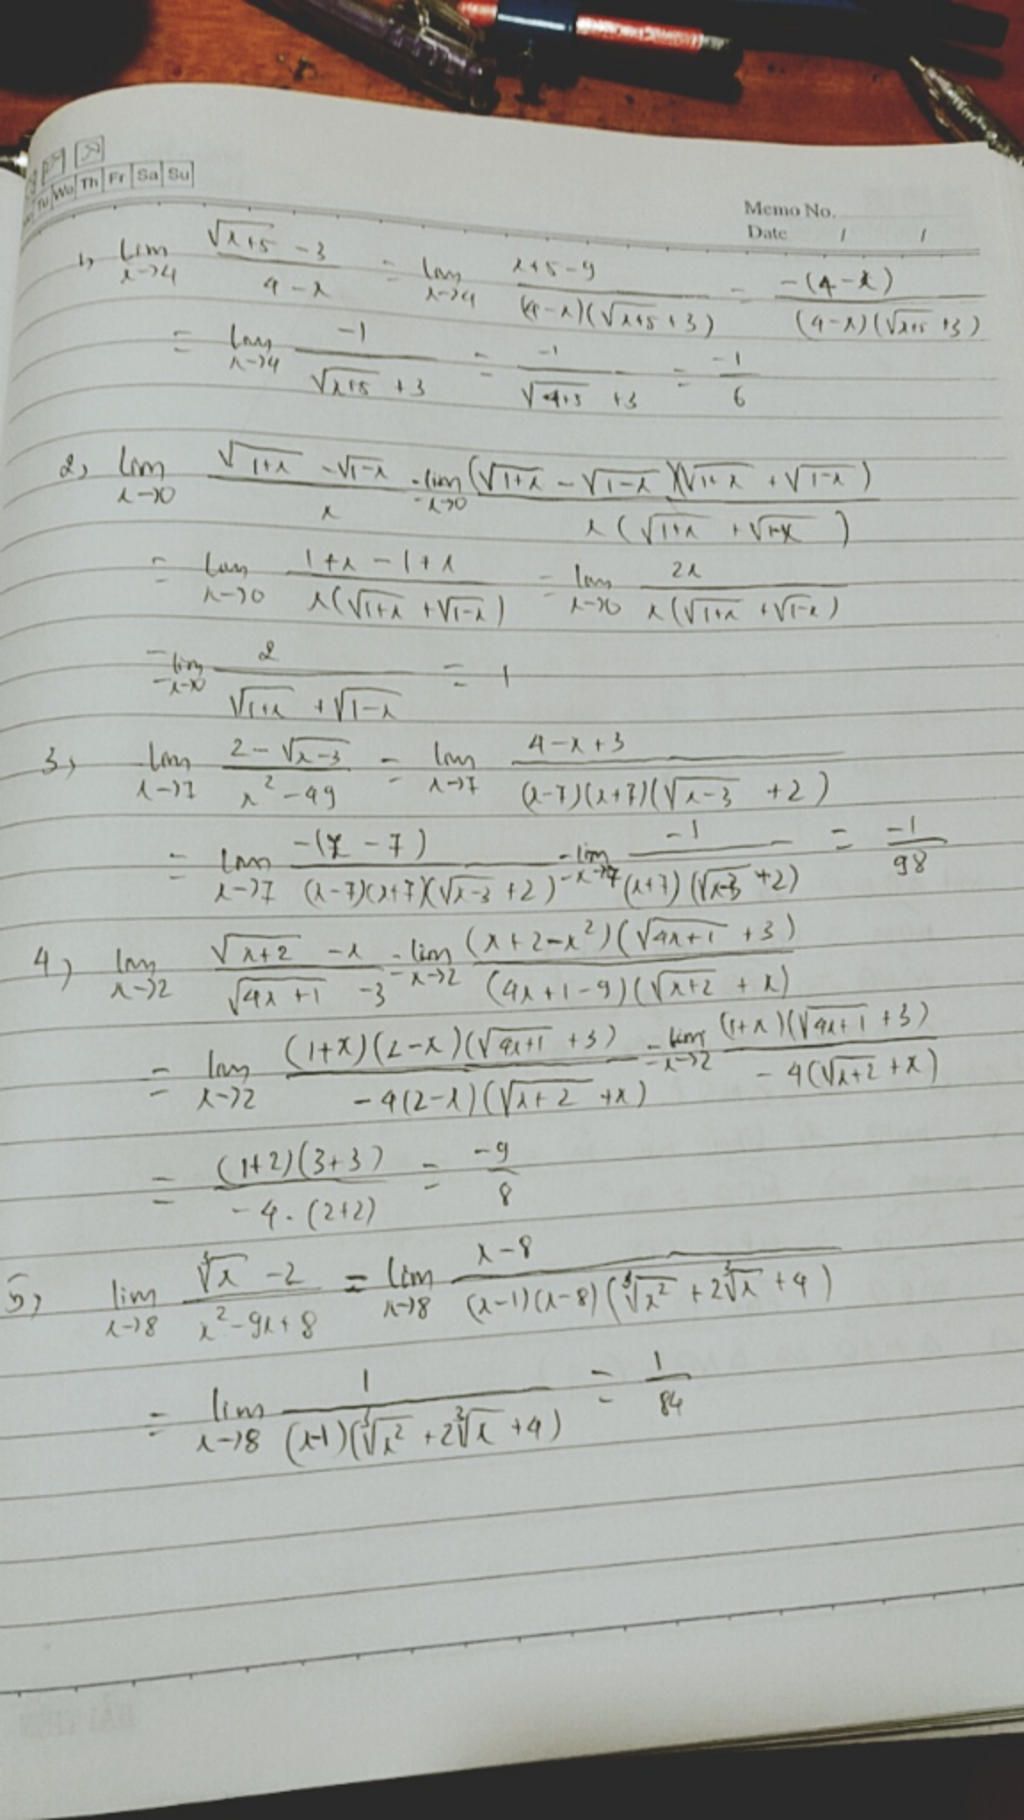 Tu Wo Th Fr Sa Su
Memo No.
Date / /
1, lim x→4 (√(x+5) - 3)/(4-x) = lim x→4 (x+5-9)/((4-x)(√(x+5) +3)) = -(4-x)/((4-x)(√(x+5) +3))
= lim x→4 -1/(√(x+5) +3) = -1/(√(4+5) +3) = -1/6
2, lim x→0 (√(1+x) - √(1-x))/x = lim x→0 (√(1+x) - √(1-x))(√(1+x) + √(1-x))/(x(√(1+x) + √(1-x)))
= lim x→0 (1+x-1+x)/(x(√(1+x) + √(1-x))) = lim x→0 2x/(x(√(1+x) + √(1-x)))
= lim x→0 2/(√(1+x) + √(1-x)) = 1
3, lim x→7 (2 - √(x-3))/(x²-49) = lim x→7 (4-x+3)/((x-7)(x+7)(√(x-3) +2))
= lim x→7 -(x-7)/((x-7)(x+7)(√(x-3) +2)) = lim x→7 -1/((x+7)(√(x-3) +2)) = -1/98
4, lim x→2 (√(x+2) - x)/(√(4x+1) - 3) = lim x→2 (x+2-x²)(√(4x+1) +3)/((4x+1-9)(√(x+2) + x))
= lim x→2 (1+x)(2-x)(√(4x+1) +3)/(-4(2-x)(√(x+2) +x)) = lim x→2 (1+x)(√(4x+1) +3)/(-4(√(x+2) +x))
= (1+2)(3+3)/(-4.(2+2)) = -9/8
5, lim x→8 (∛x - 2)/(x²-9x+8) = lim x→8 (x-8)/((x-1)(x-8)(∛x² + 2∛x +4))
= lim x→8 1/((x-1)(∛x² + 2∛x +4)) = 1/84